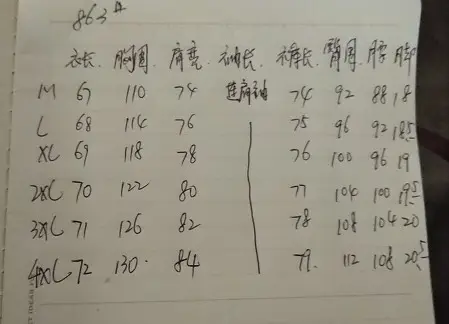 863#
衣长 胸围 肩宽 袖长 裤长 臀围 腰 脚
M 67 110 74 连肩袖 74 92 88 18
L 68 114 76 75 96 92 18.5
XL 69 118 78 76 100 96 19
2XL 70 122 80 77 104 100 19.5
3XL 71 126 82 78 108 104 20
4XL 72 130 84 79 112 108 20.5